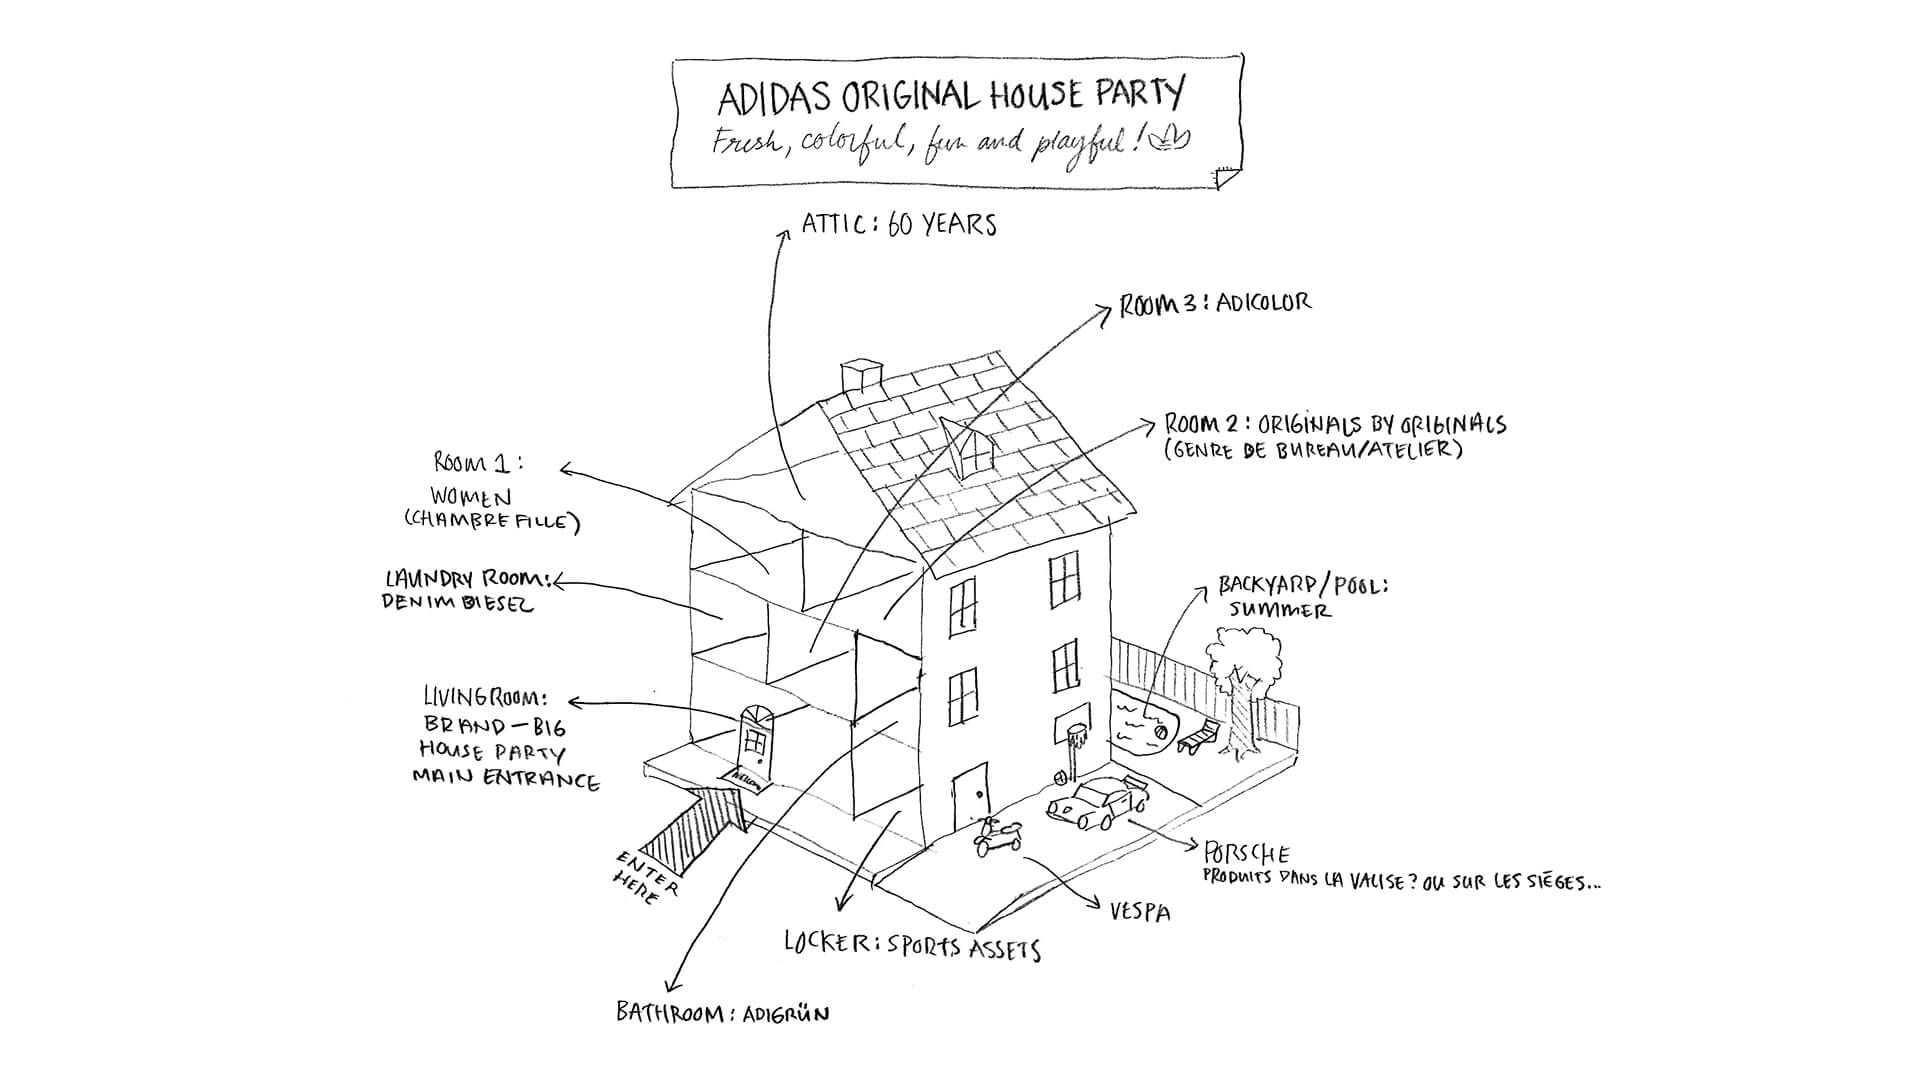 ADIDAS ORIGINAL HOUSE PARTY
Fresh, colorful, fun and playful!
ATTIC: 60 YEARS
ROOM 3: ADICOLOR
ROOM 2: ORIGINALS BY ORIGINALS
(GENRE DE BUREAU/ATELIER)
ROOM 1:
WOMEN
(CHAMBRE FILLE)
LAUNDRY ROOM:
DENIM DIESEL
BACKYARD/POOL:
SUMMER
LIVINGROOM:
BRAND-BIG
HOUSE PARTY
MAIN ENTRANCE
WELCOME
ENTER
HERE
PORSCHE
PRODUITS DANS LA VALISE? OU SUR LES SIÉGES...
VESPA
LOCKER: SPORTS ASSETS
BATHROOM: ADIGRÜN